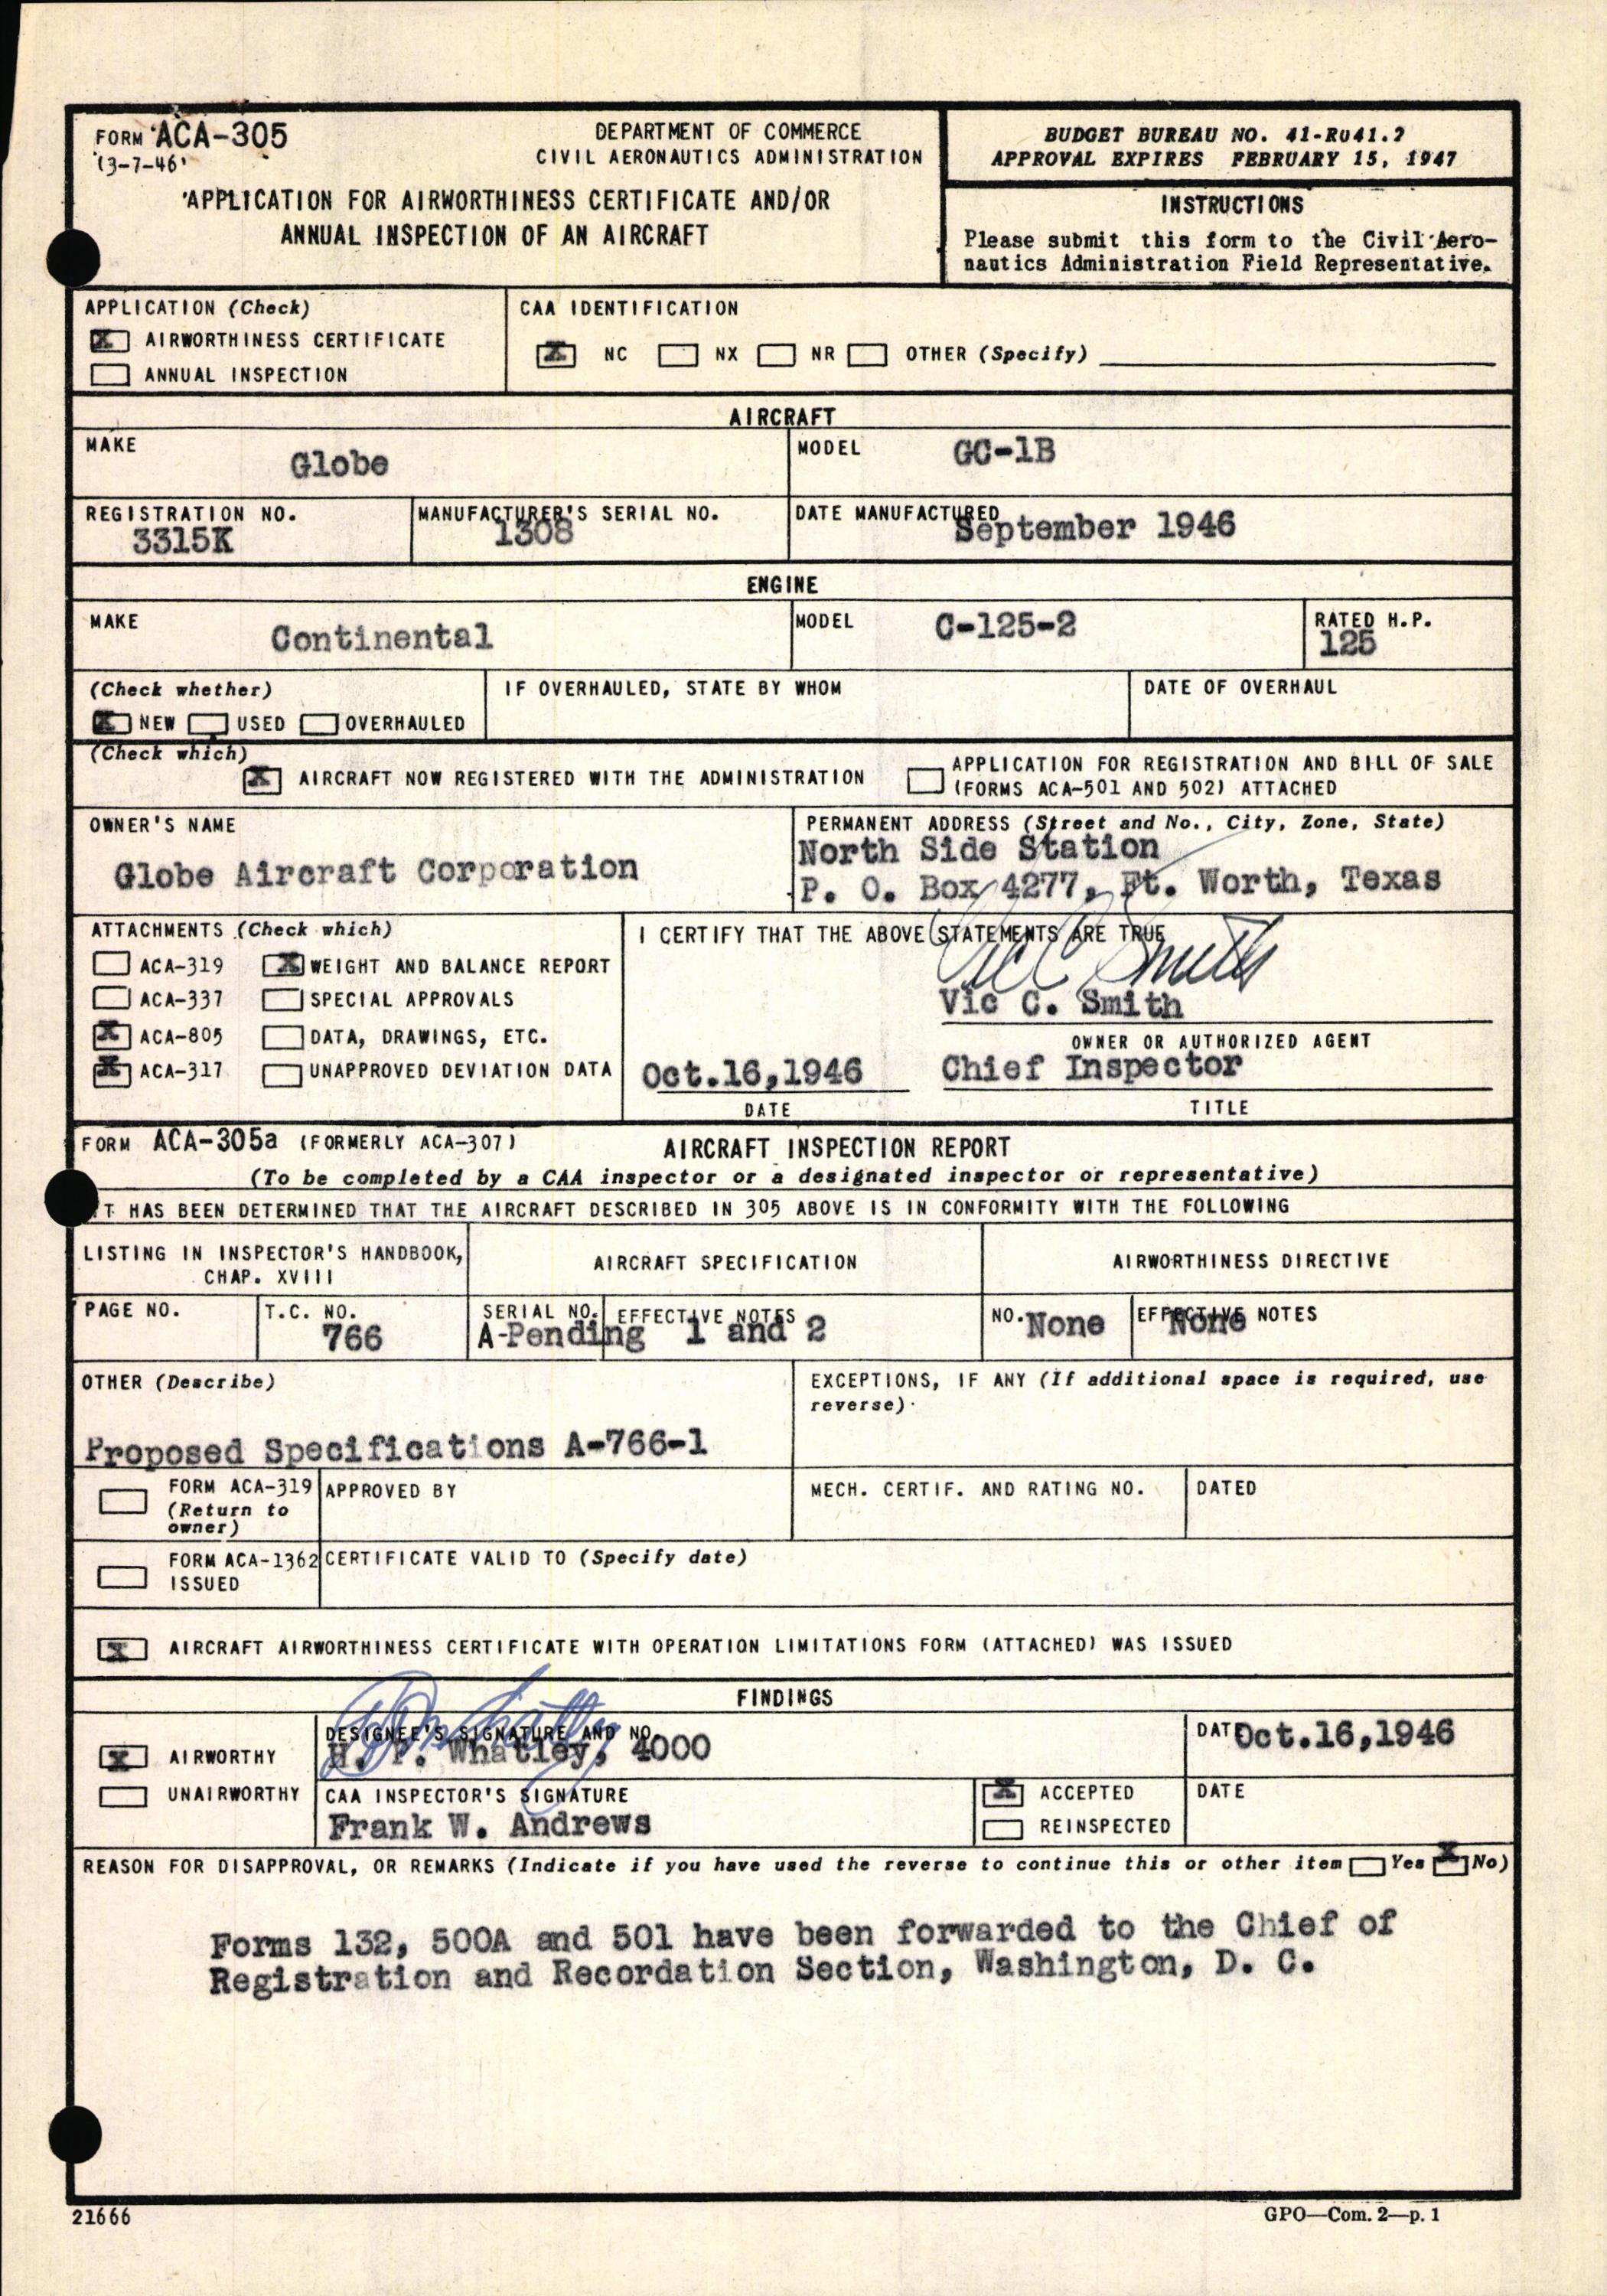 FORM ACA-305
(3-7-46)
DEPARTMENT OF COMMERCE
CIVIL AERONAUTICS ADMINISTRATION
APPLICATION FOR AIRWORTHINESS CERTIFICATE AND/OR
ANNUAL INSPECTION OF AN AIRCRAFT
BUDGET BUREAU NO. 41-R041.2
APPROVAL EXPIRES FEBRUARY 15, 1947
INSTRUCTIONS
Please submit this form to the Civil Aero-
nautics Administration Field Representative.
APPLICATION (Check)
X AIRWORTHINESS CERTIFICATE
ANNUAL INSPECTION
CAA IDENTIFICATION
X NC NX NR OTHER (Specify)
AIRCRAFT
MAKE
Globe
MODEL GC-1B
REGISTRATION NO.
3315K
MANUFACTURER'S SERIAL NO.
1308
DATE MANUFACTURED
September 1946
ENGINE
MAKE
Continental
MODEL C-125-2
RATED H.P.
125
(Check whether)
X NEW USED OVERHAULED
IF OVERHAULED, STATE BY WHOM
DATE OF OVERHAUL
(Check which)
X AIRCRAFT NOW REGISTERED WITH THE ADMINISTRATION
APPLICATION FOR REGISTRATION AND BILL OF SALE
(FORMS ACA-501 AND 502) ATTACHED
OWNER'S NAME
Globe Aircraft Corporation
PERMANENT ADDRESS (Street and No., City, Zone, State)
North Side Station
P. O. Box 4277, Ft. Worth, Texas
ATTACHMENTS (Check which)
ACA-319 X WEIGHT AND BALANCE REPORT
ACA-337 SPECIAL APPROVALS
X ACA-805 DATA, DRAWINGS, ETC.
X ACA-317 UNAPPROVED DEVIATION DATA
I CERTIFY THAT THE ABOVE STATEMENTS ARE TRUE
Vic C Smith
Vic C. Smith
OWNER OR AUTHORIZED AGENT
Oct.16,1946 Chief Inspector
DATE TITLE
FORM ACA-305a (FORMERLY ACA-307) AIRCRAFT INSPECTION REPORT
(To be completed by a CAA inspector or a designated inspector or representative)
IT HAS BEEN DETERMINED THAT THE AIRCRAFT DESCRIBED IN 305 ABOVE IS IN CONFORMITY WITH THE FOLLOWING
LISTING IN INSPECTOR'S HANDBOOK,
CHAP. XVIII
AIRCRAFT SPECIFICATION
AIRWORTHINESS DIRECTIVE
PAGE NO.
T.C. NO.
766
SERIAL NO.
A-Pending
EFFECTIVE NOTES
1 and 2
NO. None
EFFECTIVE NOTES
None
OTHER (Describe)
Proposed Specifications A-766-1
EXCEPTIONS, IF ANY (If additional space is required, use
reverse)
FORM ACA-319
(Return to
owner)
APPROVED BY
MECH. CERTIF. AND RATING NO.
DATED
FORM ACA-1362
ISSUED
CERTIFICATE VALID TO (Specify date)
X AIRCRAFT AIRWORTHINESS CERTIFICATE WITH OPERATION LIMITATIONS FORM (ATTACHED) WAS ISSUED
FINDINGS
X AIRWORTHY
UNAIRWORTHY
DESIGNEE'S SIGNATURE AND NO.
H. P. Whatley, 4000
DATE Oct.16,1946
CAA INSPECTOR'S SIGNATURE
Frank W. Andrews
X ACCEPTED
REINSPECTED
DATE
REASON FOR DISAPPROVAL, OR REMARKS (Indicate if you have used the reverse to continue this or other item Yes X No)
Forms 132, 500A and 501 have been forwarded to the Chief of
Registration and Recordation Section, Washington, D. C.
21666
GPO—Com. 2—p. 1